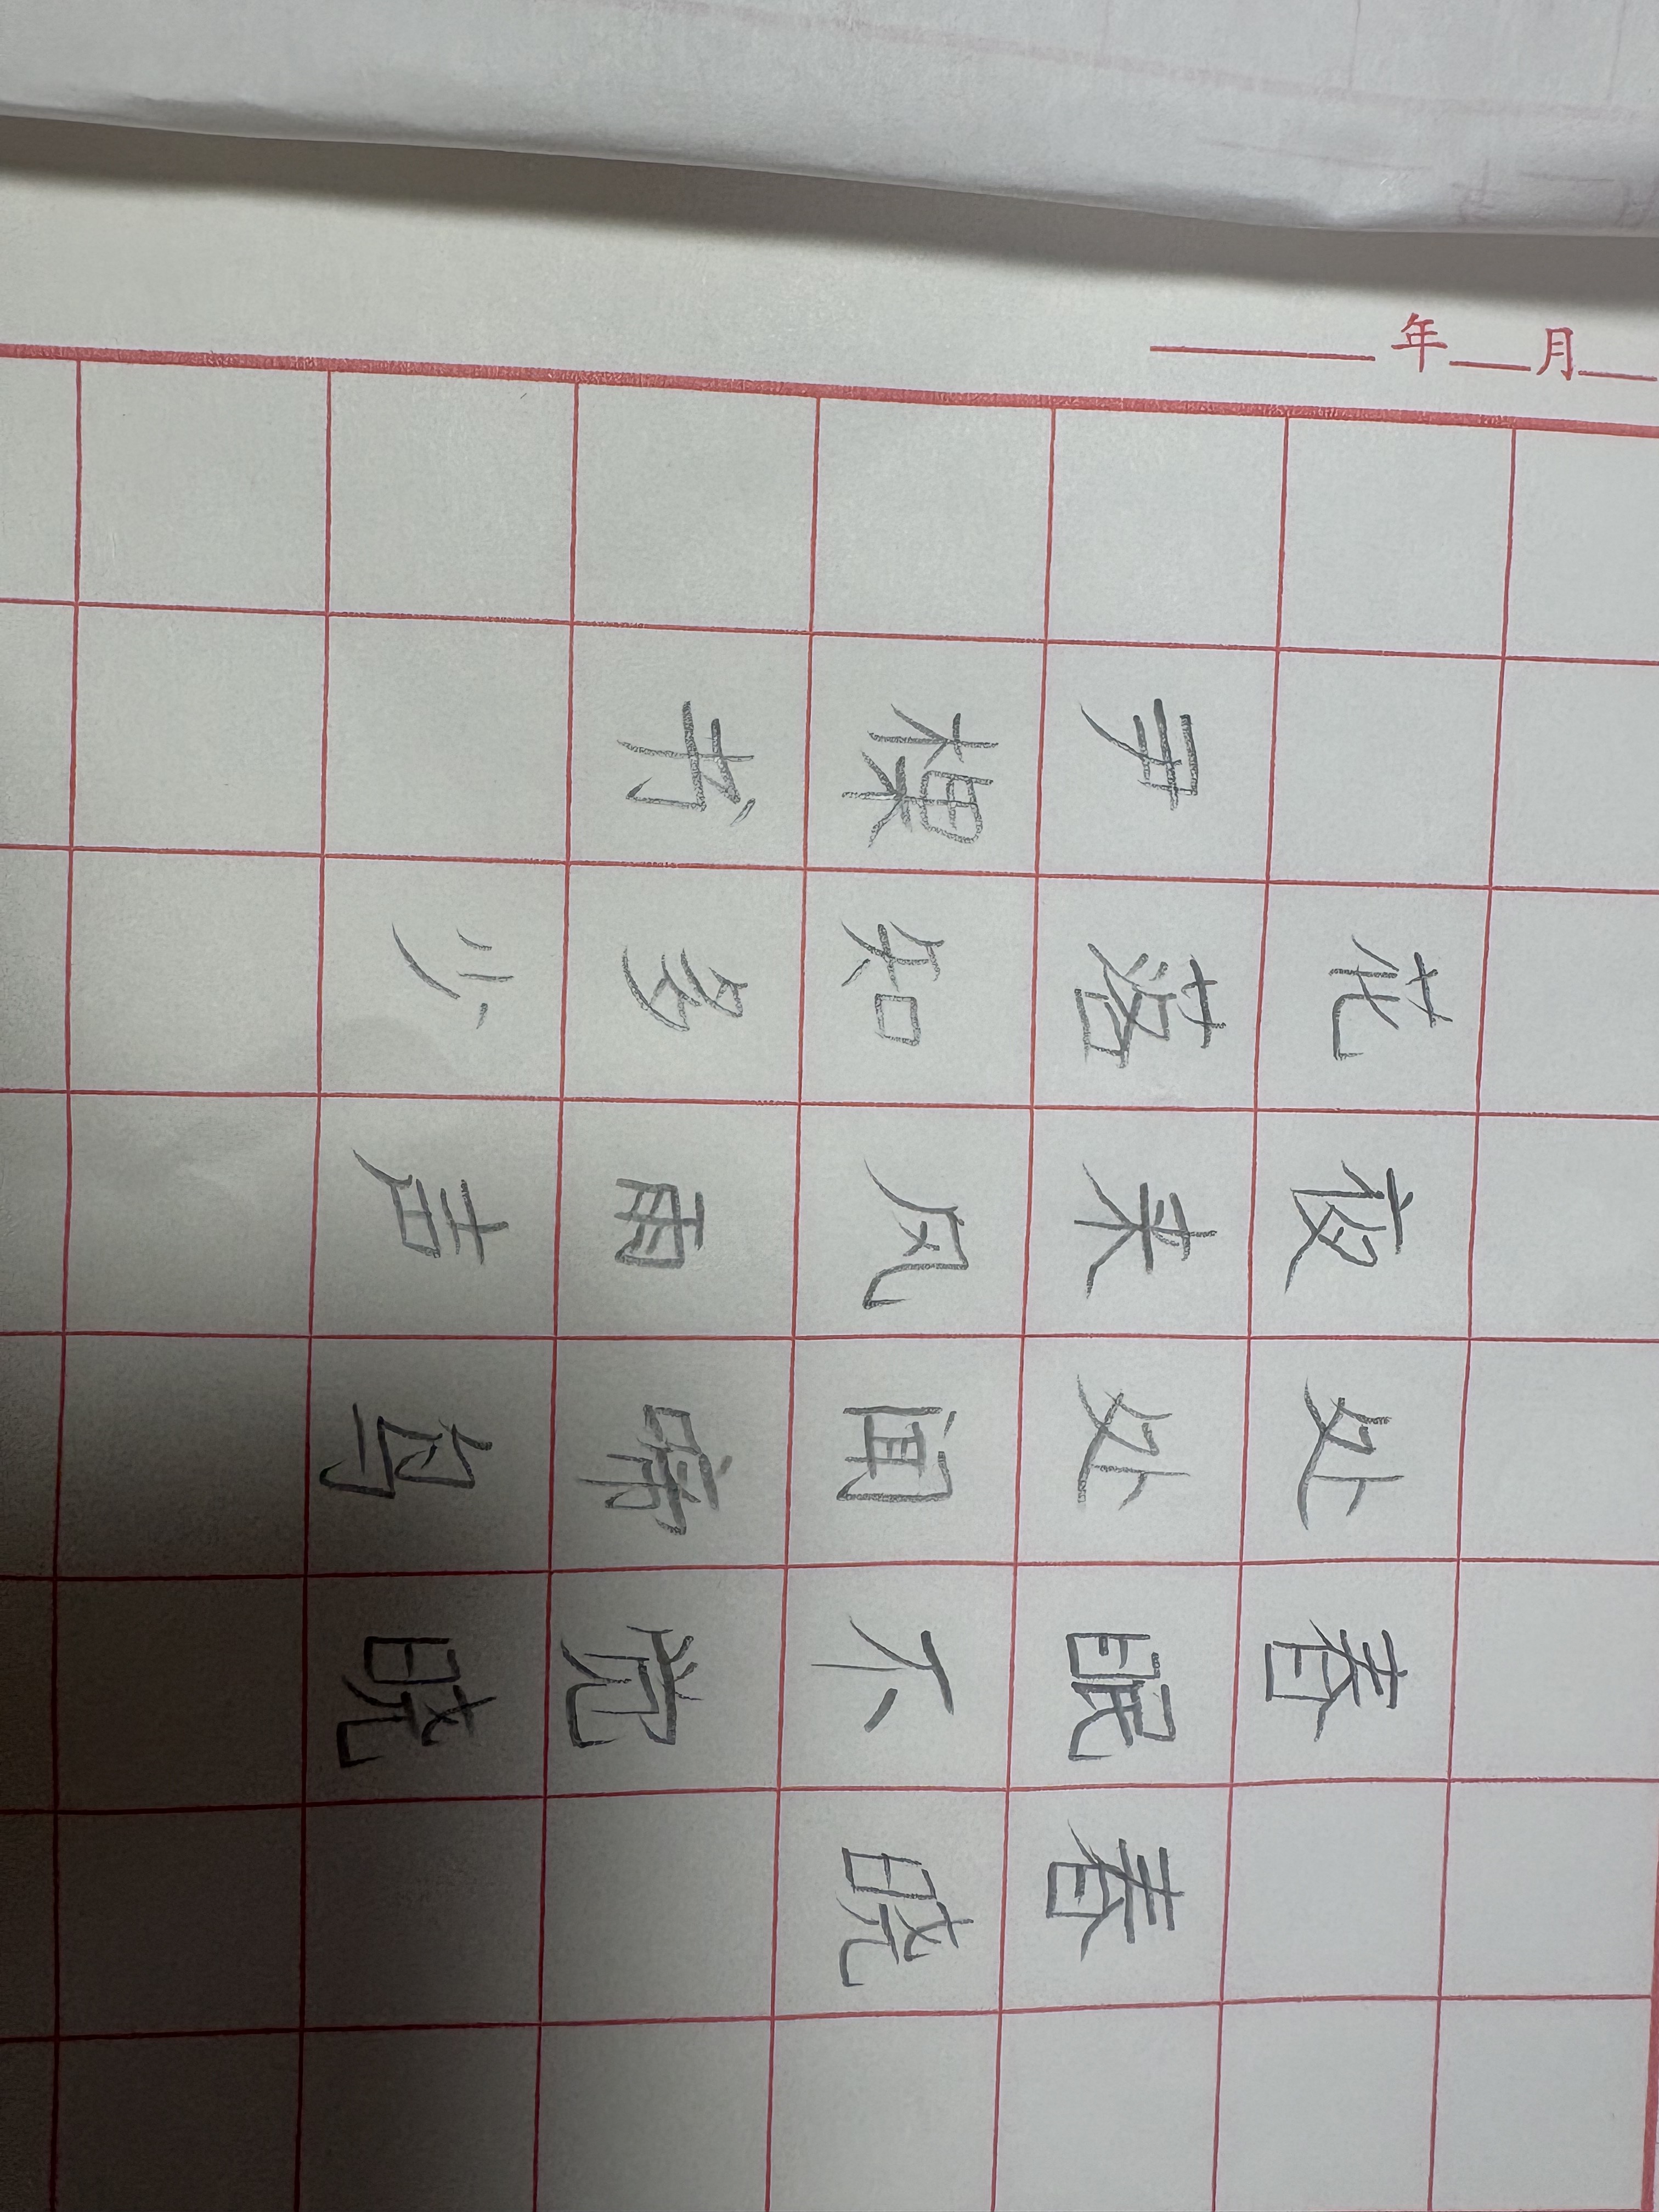 年 月
春晓
春眠不觉晓
处处闻啼鸟
夜来风雨声
花落知多少
尹棵书